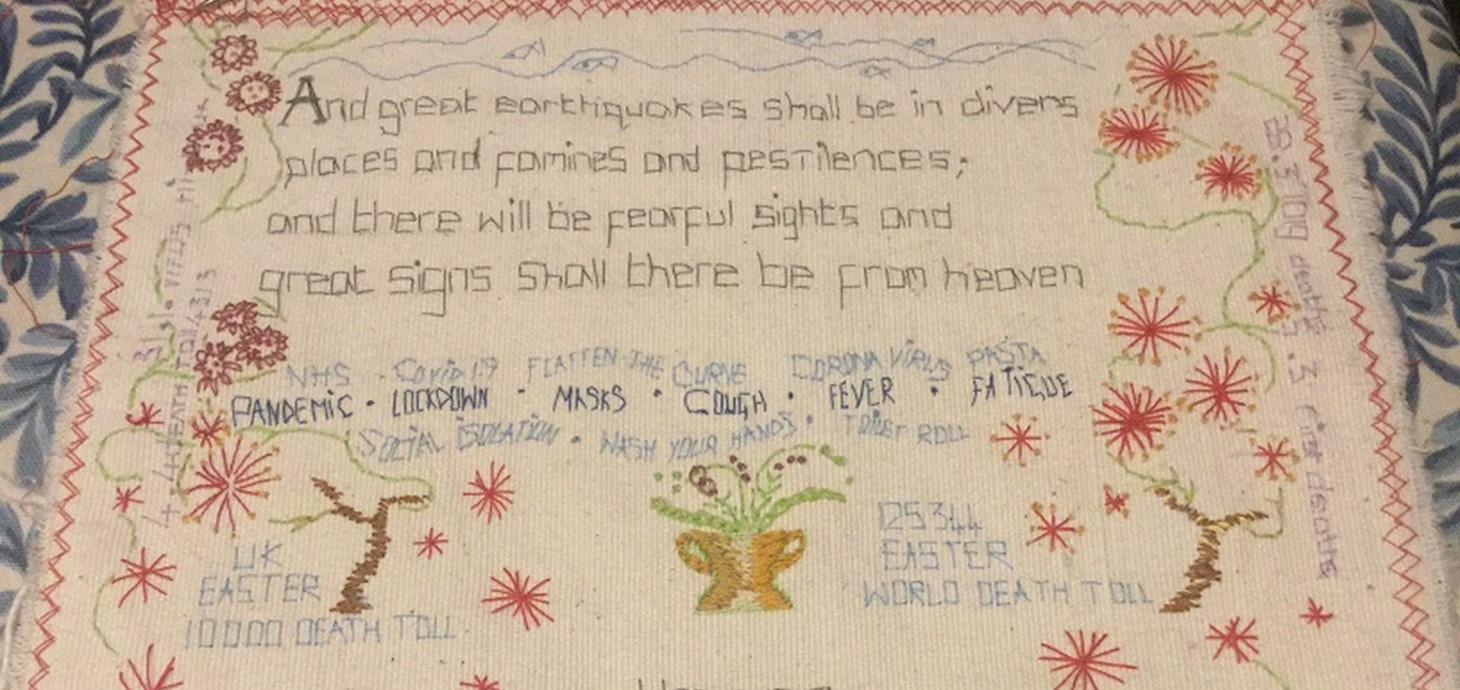 And great earthquakes shall be in divers
places and famines and pestilences;
and there will be fearful sights and
great signs shall there be from heaven
NHS · Covid 19 FLATTEN THE CURVE CORONA VIRUS PASTA
PANDEMIC · LOCKDOWN · MASKS · COUGH · FEVER · FATIGUE
SOCIAL ISOLATION · WASH YOUR HANDS · TOILET ROLL
UK
EASTER
10000 DEATH TOLL
125344
EASTER
WORLD DEATH TOLL
4.4 DEATH TOLL 4313
5.3 first deaths